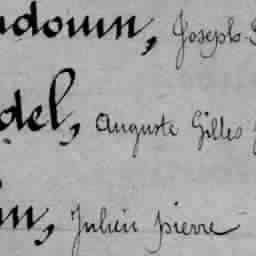 udouin, Joseph
del, Auguste Gilles
in, Julien pierre